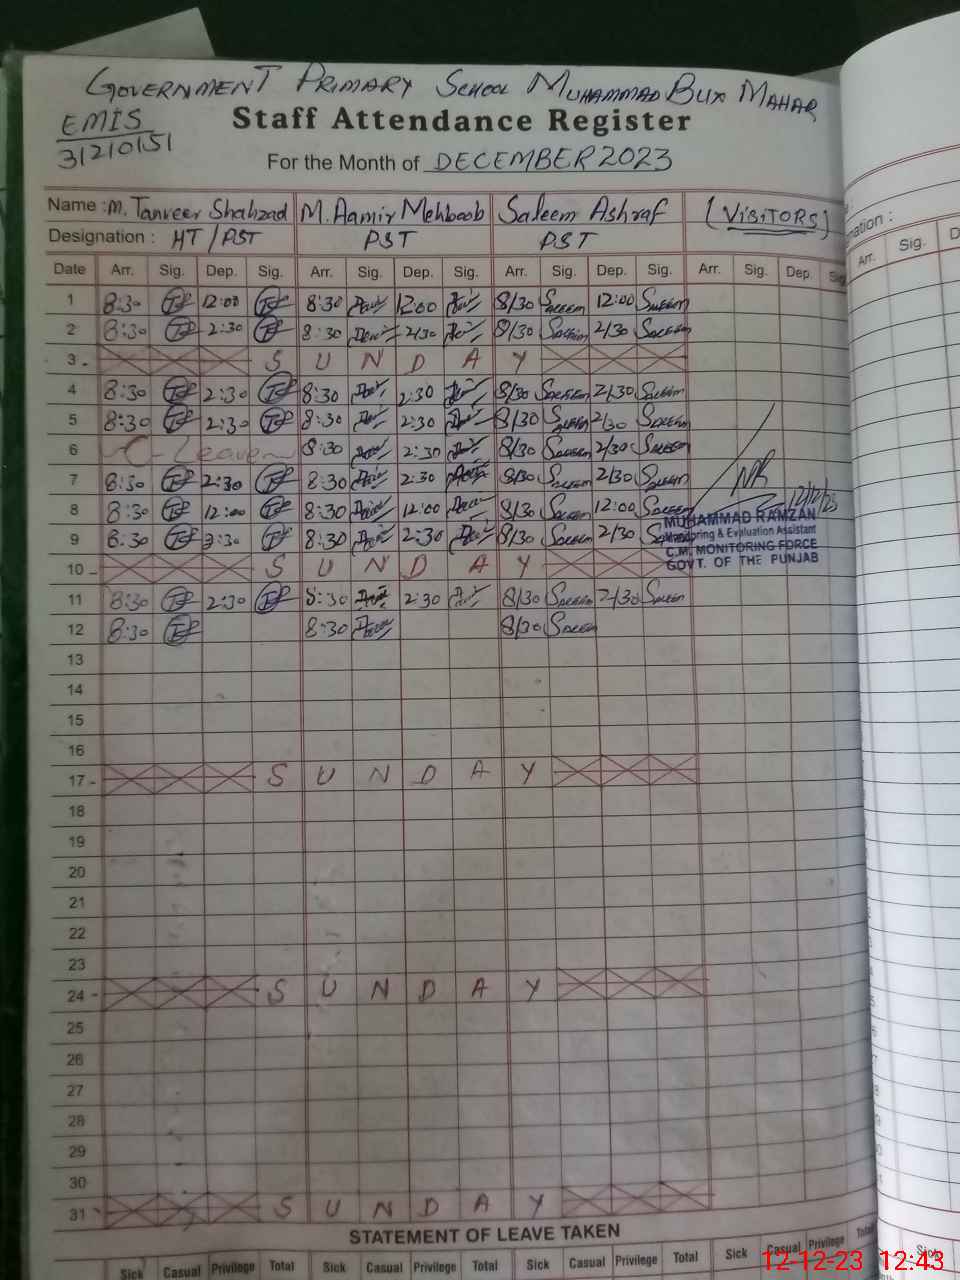 GOVERNMENT PRIMARY SCHOOL MUHAMMAD BUX MAHAR
EMIS
31210151
Staff Attendance Register
For the Month of DECEMBER 2023
Name : M. Tanveer Shahzad M. Aamir Mehboob Saleem Ashraf (VISITORS)
Designation : HT/PST PST PST
Date Arr. Sig. Dep. Sig. Arr. Sig. Dep. Sig. Arr. Sig. Dep. Sig. Arr. Sig. Dep. Sig
1 8:30 12:00 8:30 12:00 8/30 Saleem 12:00 Saleem
2 8:30 2:30 8:30 2/30 8/30 Saleem 2/30 Saleem
3 - S U N D A Y
4 8:30 2:30 8:30 2:30 8/30 Saleem 2/30 Saleem
5 8:30 2:30 8:30 2:30 8/30 Saleem 2/30 Saleem
6 C-Leave 8:30 2:30 8/30 Saleem 2/30 Saleem
7 8:30 2:30 8:30 2:30 8/30 Saleem 2/30 Saleem
8 8:30 12:00 8:30 12:00 8/30 Saleem 12:00 Saleem
9 8:30 2:30 8:30 2:30 8/30 Saleem 2/30
12/12/23
MUHAMMAD RAMZAN
Monitoring & Evaluation Assistant
C.M. MONITORING FORCE
GOVT. OF THE PUNJAB
10 - S U N D A Y
11 8:30 2:30 8:30 2:30 8/30 Saleem 2/30 Saleem
12 8:30 8:30 8/30 Saleem
13
14
15
16
17 - S U N D A Y
18
19
20
21
22
23
24 - S U N D A Y
25
26
27
28
29
30
31 - S U N D A Y
STATEMENT OF LEAVE TAKEN
Sick Casual Privilege Total Sick Casual Privilege Total Sick Casual Privilege Total Sick Casual Privilege Total
nation :
Arr. Sig. D
Sick
12-12-23 12:43